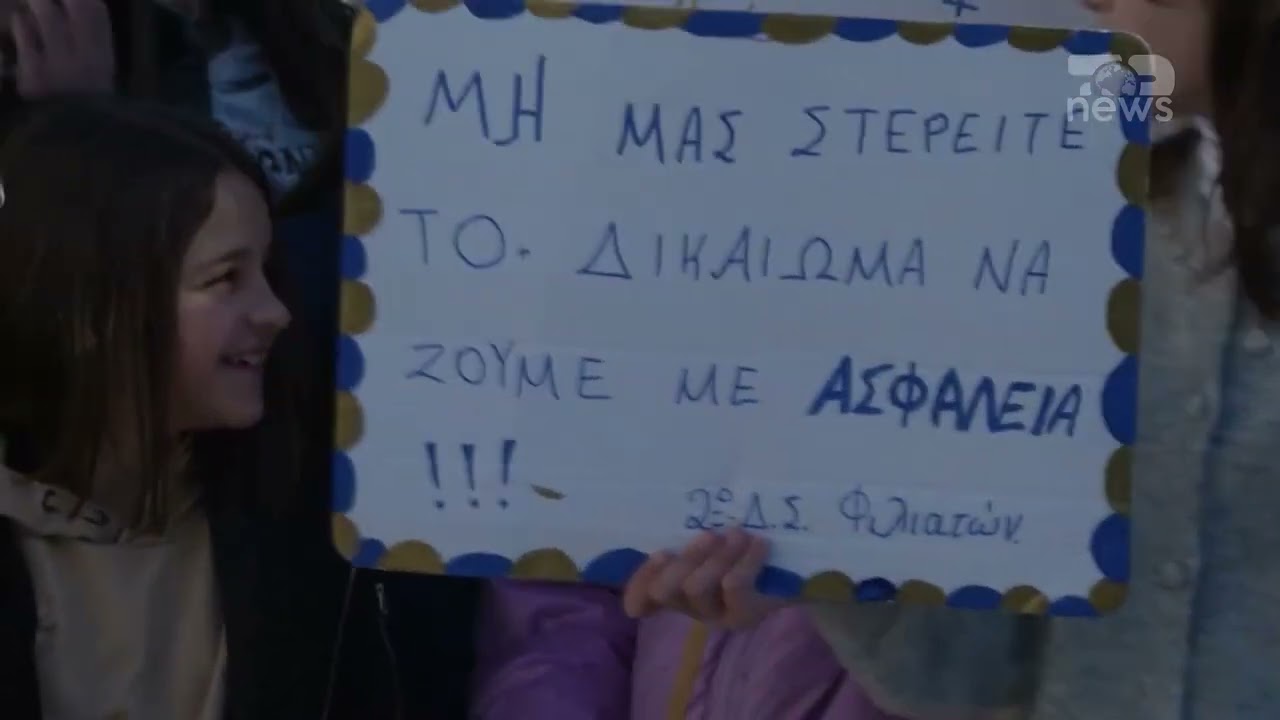 ΜΗ ΜΑΣ ΣΤΕΡΕΙΤΕ
ΤΟ. ΔΙΚΑΙΩΜΑ ΝΑ
ΖΟΥΜΕ ΜΕ ΑΣΦΑΛΕΙΑ
!!!
2ο Δ.Σ. Φιλιατών
news